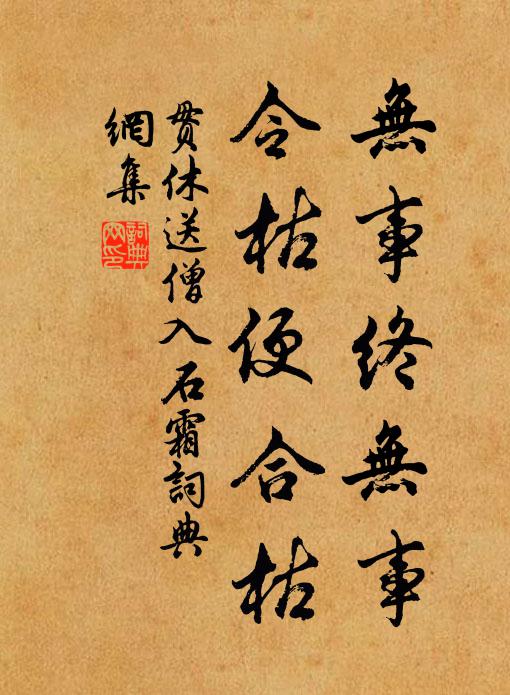 無事終無事
令枯便合枯
貫休送僧入石霜詞典
網集
詞典
网印